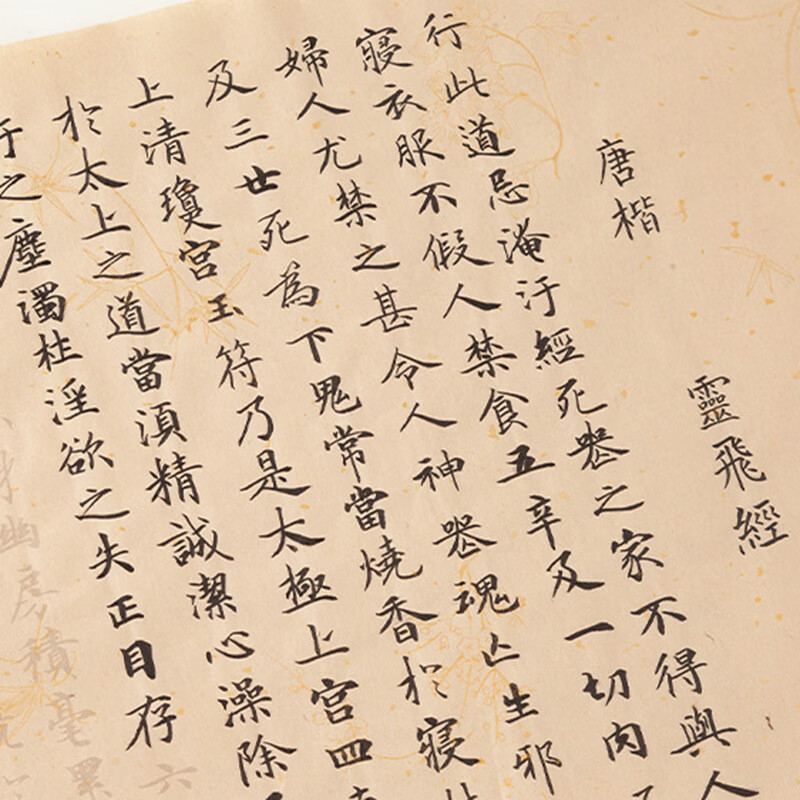 靈飛經
唐楷
行此道忌淹汙經死喪之家不得與人
寢衣服不假人禁食五辛及一切肉
婦人尤禁之甚令人神喪魂亡生邪
及三世死為下鬼常當燒香於寢
上清瓊宮玉符乃是太極上宮四
於太上之道當須精誠潔心澡除
之塵濁杜淫欲之失正目存六
幽房積毫累